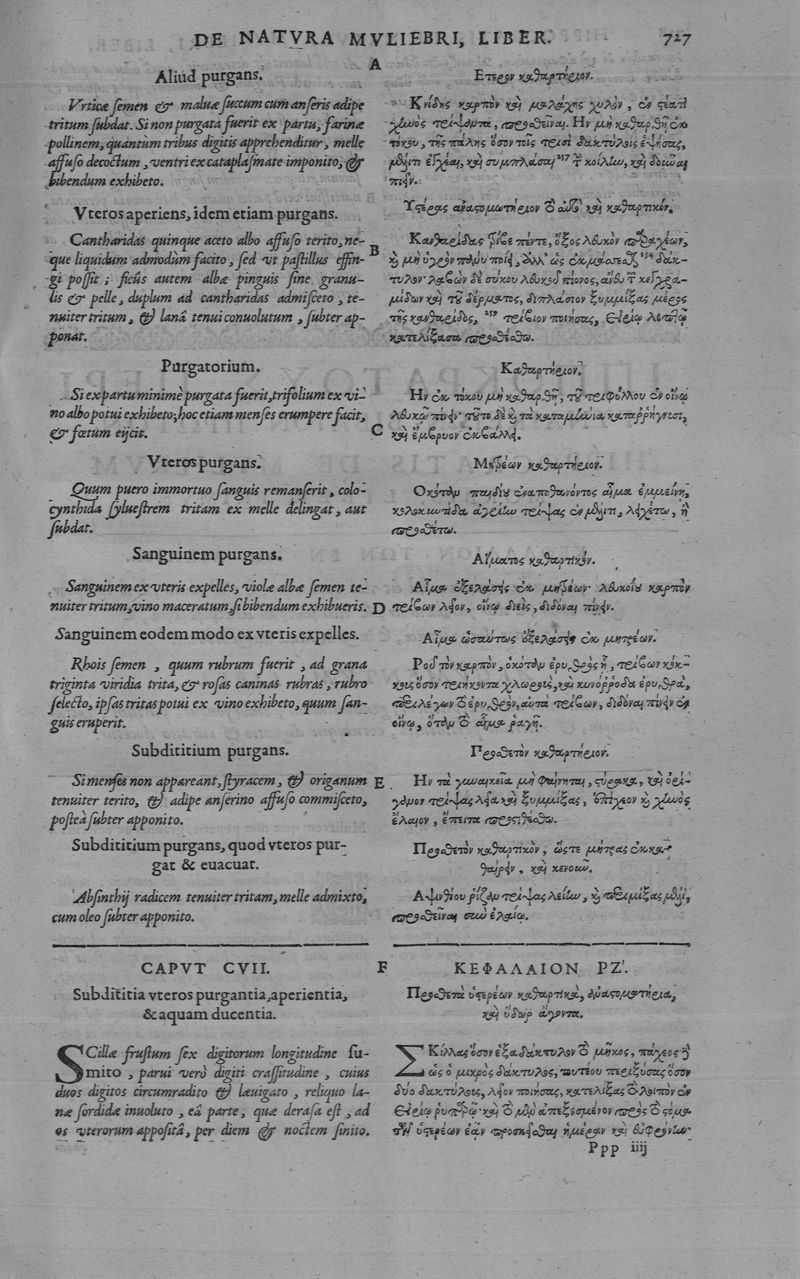 DE NATVRA MVLIEBRI, LIBER. 727
A
Aliud purgans.
Vrticæ semen & maluæ succum cum anseris adipe
tritum subdat. Si non purgata fuerit ex partu, farinæ
pollinem, quantum tribus digitis apprehenditur, melle
affuso decoctum, ventri ex cataplasmate imponito, &
bibendum exhibeto.
Vteros aperiens, idem etiam purgans.
Cantharidas quinque aceto albo affuso terito, ne-
que liquidum admodùm facito, sed vt pastillus effin-
gi possit ; ficûs autem albæ pinguis sine granu-
lis & pelle, duplum ad cantharidas admisceto, te-
nuiter tritum, & lanâ tenui conuolutum, subter ap-
ponat.
Purgatorium.
Si ex partu minimè purgata fuerit, trifolium ex vi-
no albo potui exhibeto; hoc etiam menses erumpere facit,
& fœtum eijcit.
Vteros purgans.
Quum puero immortuo sanguis remanserit, colo-
cynthida sylvestrem tritam ex melle delingat, aut
subdat.
Sanguinem purgans.
Sanguinem ex vteris expelles, violæ albæ semen te-
nuiter tritum, vino maceratum, si bibendum exhibueris.
Sanguinem eodem modo ex vteris expelles.
Rhois semen , quum rubrum fuerit , ad grana
triginta viridia trita, & rosas caninas rubras, rubro
selecto, ipsas tritas potui ex vino exhibeto, quum san-
guis eruperit.
Subdititium purgans.
Si menses non appareant, styracem, & origanum
tenuiter terito, & adipe anserino affuso commisceto,
posteà subter apponito.
Subdititium purgans, quod vteros pur-
gat & euacuat.
Absinthij radicem tenuiter tritam, melle admixto,
cum oleo subter apponito.
CAPVT CVII.
Subdititia vteros purgantia, aperientia,
& aquam ducentia.
SCillæ frustum sex digitorum longitudine su-
mito , parui verò digiti crassitudine , cuius
duos digitos circumradito & læuigato , reliquo la-
næ sordidæ inuoluto , eâ parte, quæ derasa est , ad
os vterorum appositâ, per diem & noctem sinito.
B
C
D
E
F
Ετερον καθαρτήριον.
Κνίδης καρπὸν καὶ μαλάχης χυλὸν, ἐν στέατι
χηνὸς τρίψαντα, προσθεῖναι. Ην μὴ καθαρθῇ ἐκ
τόκου, τῆς πάλης ὅσον τοῖς τρισὶ δακτύλοις ἑψήσας,
μέλιτι ἐγχέαι, καὶ συμπλάσαι 257 τ κοιλίην, καὶ δοῦναι
πιεῖν.
Υστέρας ἀναστομωτήριον τὸ αὐτὸ καὶ καθαρτικόν.
Κανθαρίδας τρῖβε πέντε, ὄξος λευκὸν παραχέων,
καταελίξασα προσθέσθω.
Καθαρτήριον.
Ην ἐκ τόκου μὴ καθαρθῇ, τοῦ τριφύλλου ἐν οἴνῳ
λευκῷ πιεῖν· τοῦτο δὲ καὶ τὰ καταμήνια καταῤῥήγνυσι,
καὶ ἔμβρυον ἐκβάλλει.
Μητρέων καθαρτήριον.
Οκόταν παιδίου ἐναποθανόντος αἷμα ἐμμείνῃ,
κολοκυντίδα ἀγρίην τρίψας ἐν μέλιτι, λειχέτω, ἢ
προσθέτω.
Αἵματος καθαρτικόν.
Αἷμα ἐξελάσεις ἐκ μητρέων· λευκοΐου καρπὸν
τρίβων λεῖον, οἴνῳ διεὶς, διδόναι πίνειν.
Αἷμα ὡσαύτως ἐξελάσεις ἐκ μητρέων.
Ροῦ τὸν καρπὸν, ὁκόταν ἐρυθρὸς ᾖ, τρίβων κόκ-
κους ὅσον τριήκοντα χλωροὺς, καὶ κυνόῤῥοδα ἐρυθρὰ,
οἴνῳ, ὅταν τὸ αἷμα ῥαγῇ.
Προσθετὸν καθαρτήριον.
Ην τὰ γυναικεῖα μὴ φαίνηται, στύρακα, καὶ ὀρί-
γανον τρίψας λεῖα καὶ ξυμμίξας, ἐπίχεον καὶ χηνὸς
ἔλαιον, ἔπειτα προστιθέσθω.
Προσθετὸν καθαρτικὸν, ὥστε μήτρας ἐκκα-
θαίρειν, καὶ κενοῦν.
Αψινθίου ῥίζαν τρίψας λείην, καὶ παραμίξας μέλι,
προσθεῖναι σὺν ἐλαίῳ.
ΚΕΦΑΛΑΙΟΝ ΡΖ'.
Προσθετὰ ὑστερέων καθαρτικὰ, ἀναστομωτήρια,
καὶ ὕδωρ ἄγοντα.
ΣΚίλλας ὅσον ἑξαδάκτυλον τὸ μῆκος, πάχεος δὲ
ὡς ὁ μικρὸς δάκτυλος, τουτέου περιξύσας ὅσον
δύο δακτύλους, λεῖον ποιήσας, κατελίξας τὸ λοιπὸν ἐν
εἰρίῳ ῥυπαρῷ· καὶ τὸ μὲν ἀπεξυσμένον πρὸς τὸ στόμα
τῶν ὑστερέων ἐᾷν προσκεῖσθαι ἡμέρην καὶ εὐφρόνην·
Ppp iiij